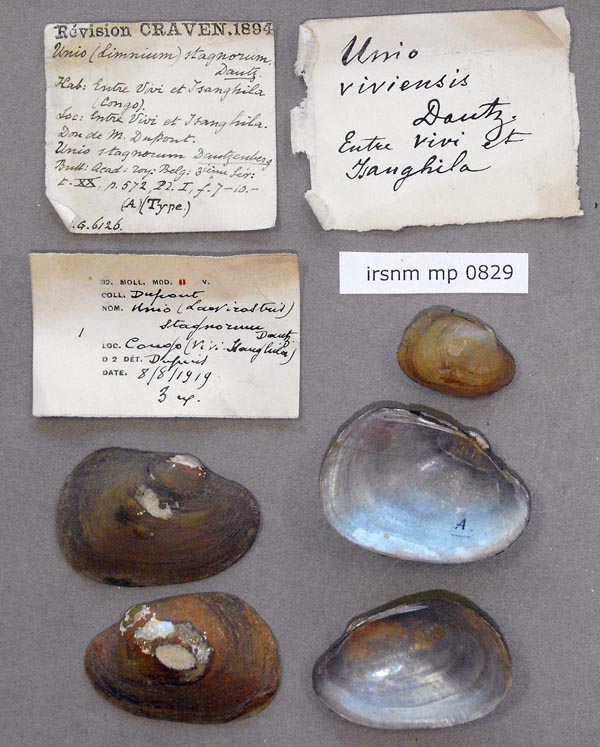 Révision CRAVEN.1894
Unio (Limnium) stagnorum.
Dautz.
Hab: Entre Vivi et Isanghila
(Congo).
Loc: Entre Vivi et Isanghila.
Don de M. Dupont.
Unio stagnorum Dautzenberg
Bull: Acad: roy: Belg: 3ième Ser:
t. XX, p. 572, Pl. I, f. 7-10.-
(A) (Type.)
.G.6126.
Unio
viviensis
Dautz.
Entre Vivi et
Isanghila
irsnm mp 0829
32. MOLL. MOD. II V.
COLL. Dupont
NOM. Unio (Laevirostris)
stagnorum Dautz
1
LOC. Congo (Vivi-Isanghila)
D 2 DÉT. Dupuis
DATE. 8/8/1919
3 ex.
A